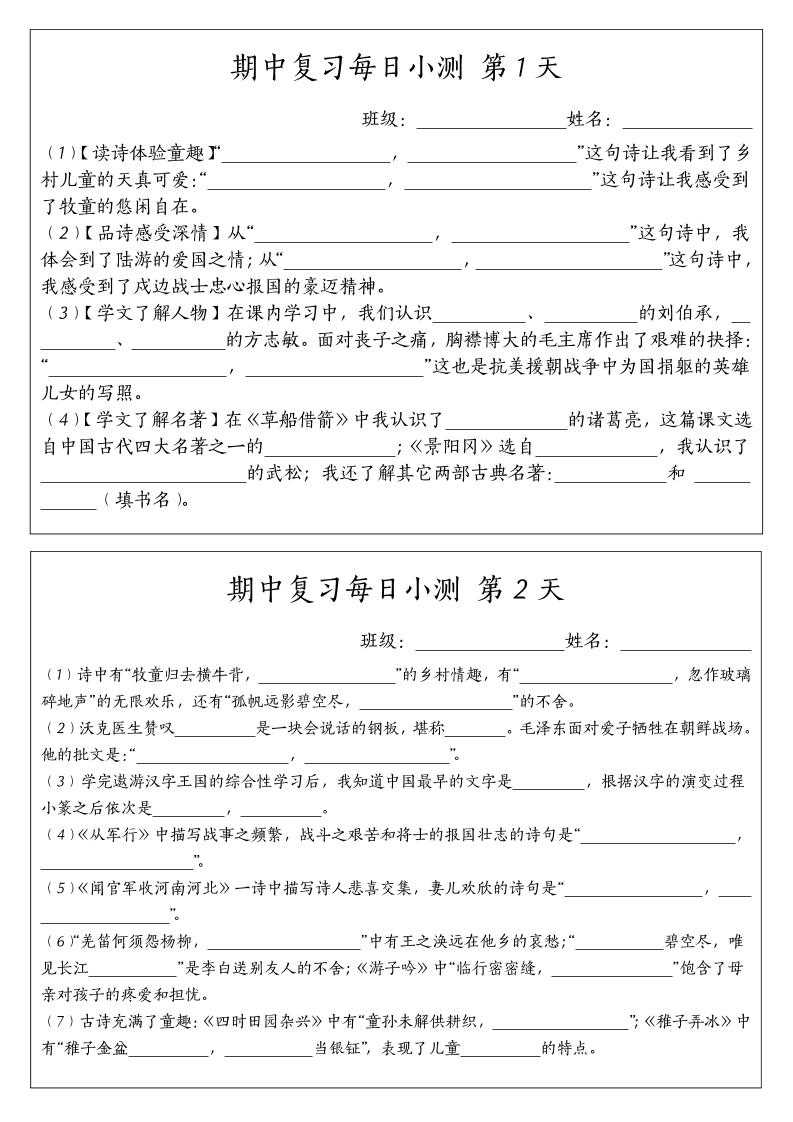 期中复习每日小测 第1天
班级：________________姓名：______________
（1）【读诗体验童趣】“__________________，__________________”这句诗让我看到了乡
村儿童的天真可爱：“___________________，____________________”这句诗让我感受到
了牧童的悠闲自在。
（2）【品诗感受深情】从“___________________，___________________”这句诗中，我
体会到了陆游的爱国之情；从“___________________，____________________”这句诗中，
我感受到了戍边战士忠心报国的豪迈精神。
（3）【学文了解人物】在课内学习中，我们认识__________、__________的刘伯承，__
________、__________的方志敏。面对丧子之痛，胸襟博大的毛主席作出了艰难的抉择：
“___________________，___________________”这也是抗美援朝战争中为国捐躯的英雄
儿女的写照。
（4）【学文了解名著】在《草船借箭》中我认识了_____________的诸葛亮，这篇课文选
自中国古代四大名著之一的______________；《景阳冈》选自_____________，我认识了
______________________的武松；我还了解其它两部古典名著：____________和 ______
______（填书名）。
期中复习每日小测 第2天
班级：________________姓名：______________
（1）诗中有“牧童归去横牛背，_________________”的乡村情趣，有“___________________，忽作玻璃
碎地声”的无限欢乐，还有“孤帆远影碧空尽，___________________”的不舍。
（2）沃克医生赞叹__________是一块会说话的钢板，堪称________。毛泽东面对爱子牺牲在朝鲜战场。
他的批文是：“___________________，__________________”。
（3）学完遨游汉字王国的综合性学习后，我知道中国最早的文字是_________，根据汉字的演变过程
小篆之后依次是_________，__________。
（4）《从军行》中描写战事之频繁，战斗之艰苦和将士的报国壮志的诗句是“___________________，
___________________”。
（5）《闻官军收河南河北》一诗中描写诗人悲喜交集，妻儿欢欣的诗句是“_________________，____
________________”。
（6）“羌笛何须怨杨柳，___________________”中有王之涣远在他乡的哀愁；“___________碧空尽，唯
见长江___________”是李白送别友人的不舍；《游子吟》中“临行密密缝，_______________”饱含了母
亲对孩子的疼爱和担忧。
（7）古诗充满了童趣：《四时田园杂兴》中有“童孙未解供耕织，_________________”；《稚子弄冰》中
有“稚子金盆__________，___________当银钲”，表现了儿童__________的特点。